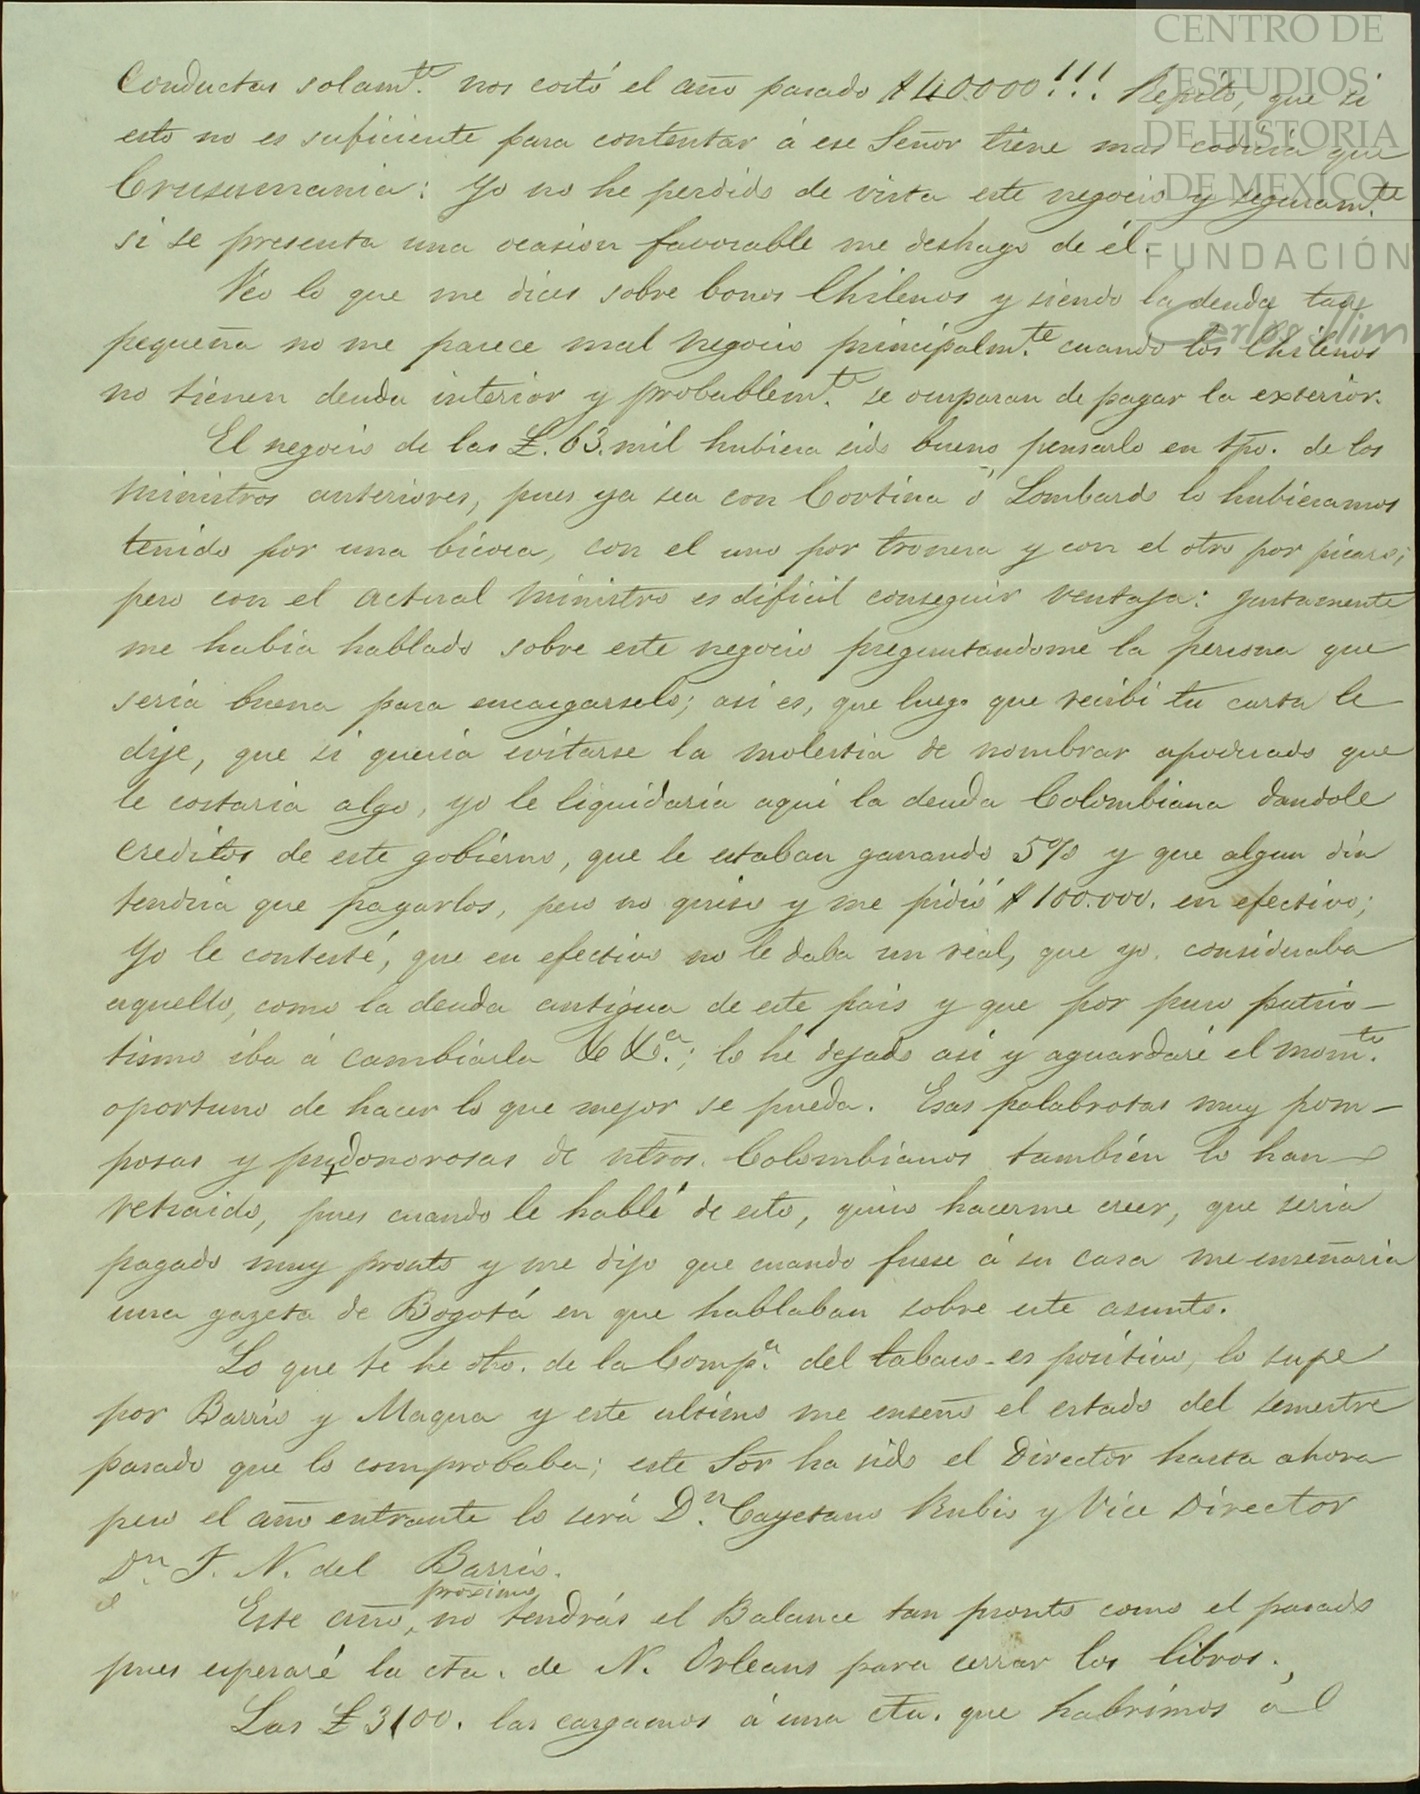 CENTRO DE
ESTUDIOS
DE HISTORIA
DE MEXICO
FUNDACIÓN
Carlos Slim
Conductas solam.te nos costó el año pasado $40000!!! Repito, que si
esto no es suficiente para contentar á ese Señor tiene mas codicia que
Yo no he perdido de vista este negocio y seguram.te
si se presenta una ocasion favorable me deshago de él.
Veo lo que me dices sobre bonos Chilenos y siendo la deuda tan
pequeña no me parece mal negocio principalm.te cuando los Chilenos
no tienen deuda interior y probablem.te se ocuparan de pagar la exterior.
El negocio de las £.63.mil hubiera sido bueno pensarlo en tpo. de los
Ministros anteriores, pues ya sea con Cortina ó Lombardo lo hubieramos
tenido por una bicoca, con el uno por tronera y con el otro por picaro;
pero con el actual Ministro es dificil conseguir ventaja: justamente
me habia hablado sobre este negocio preguntandome la persona que
seria buena para encargarselo; asi es, que luego que recibi tu carta le
dije, que si queria evitarse la molestia de nombrar apoderado que
le costaria algo, yo le liquidaria aqui la deuda Colombiana dandole
creditos de este gobierno, que le estaban ganando 5% y que algun dia
tendria que pagarlos, pero no quiso y me pidió $100.000. en efectivo;
Yo le contesté, que en efectivo no le daba un real, que yo consideraba
aquello, como la deuda antigua de este pais y que por puro patrio-
tismo iba á cambiarla & &.a; lo he dejado asi y aguardaré el mom.to
oportuno de hacer lo que mejor se pueda. Esas palabrotas muy pom-
posas y pundonorosas de ntros. Colombianos tambien lo han
retraido, pues cuando le hablé de esto, quiso hacerme creer, que seria
pagado muy pronto y me dijo que cuando fuese á su casa me enseñaria
una gazeta de Bogotá en que hablaban sobre este asunto.
Lo que te he dho. de la Comp.a del tabaco es positivo, lo supe
por Barrio y Magua y este ultimo me enseño el estado del semestre
pasado que lo comprobaba; este Sor ha sido el Director hasta ahora
pero el año entrante lo será D.n Cayetano Rubio y Vice Director
Dn. F. N. del Barrio.
Este año, proximo no tendrás el Balance tan pronto como el pasado
pues esperaré la cta. de N. Orleans para cerrar los libros.
Las £3100. las cargamos á una cta. que habrimos á